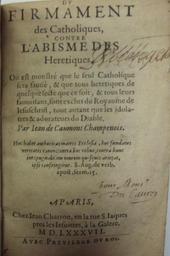 DV
FIRMAMENT
des Catholiques,
CONTRE
L'ABISME DES
Heretiques,
Où est monstré que le seul Catholique
sera sauué, & que tous heretiques de
quelque secte que ce soit, & tous leurs
fauorisans, sont exclus du Royaume de
Iesuschrist, tout autant que les idola-
tres & adorateurs du Diable.
Par Iean de Caumont Champenois.
Hoc habet authoritas matris Ecclesiæ, hoc fundatus
veritatis canon: contra hoc robur, contra hunc
inexpugnabilem murum quisquis arietat,
ipse confringitur. S. Aug. de verb.
apost. serm. 14.
A PARIS,
Chez Iean Charron, en la rue S. Iaques
pres les Iesuistes, à la Galere.
M.D.LXXXVII.
AVEC PRIVILEGE DV ROY.